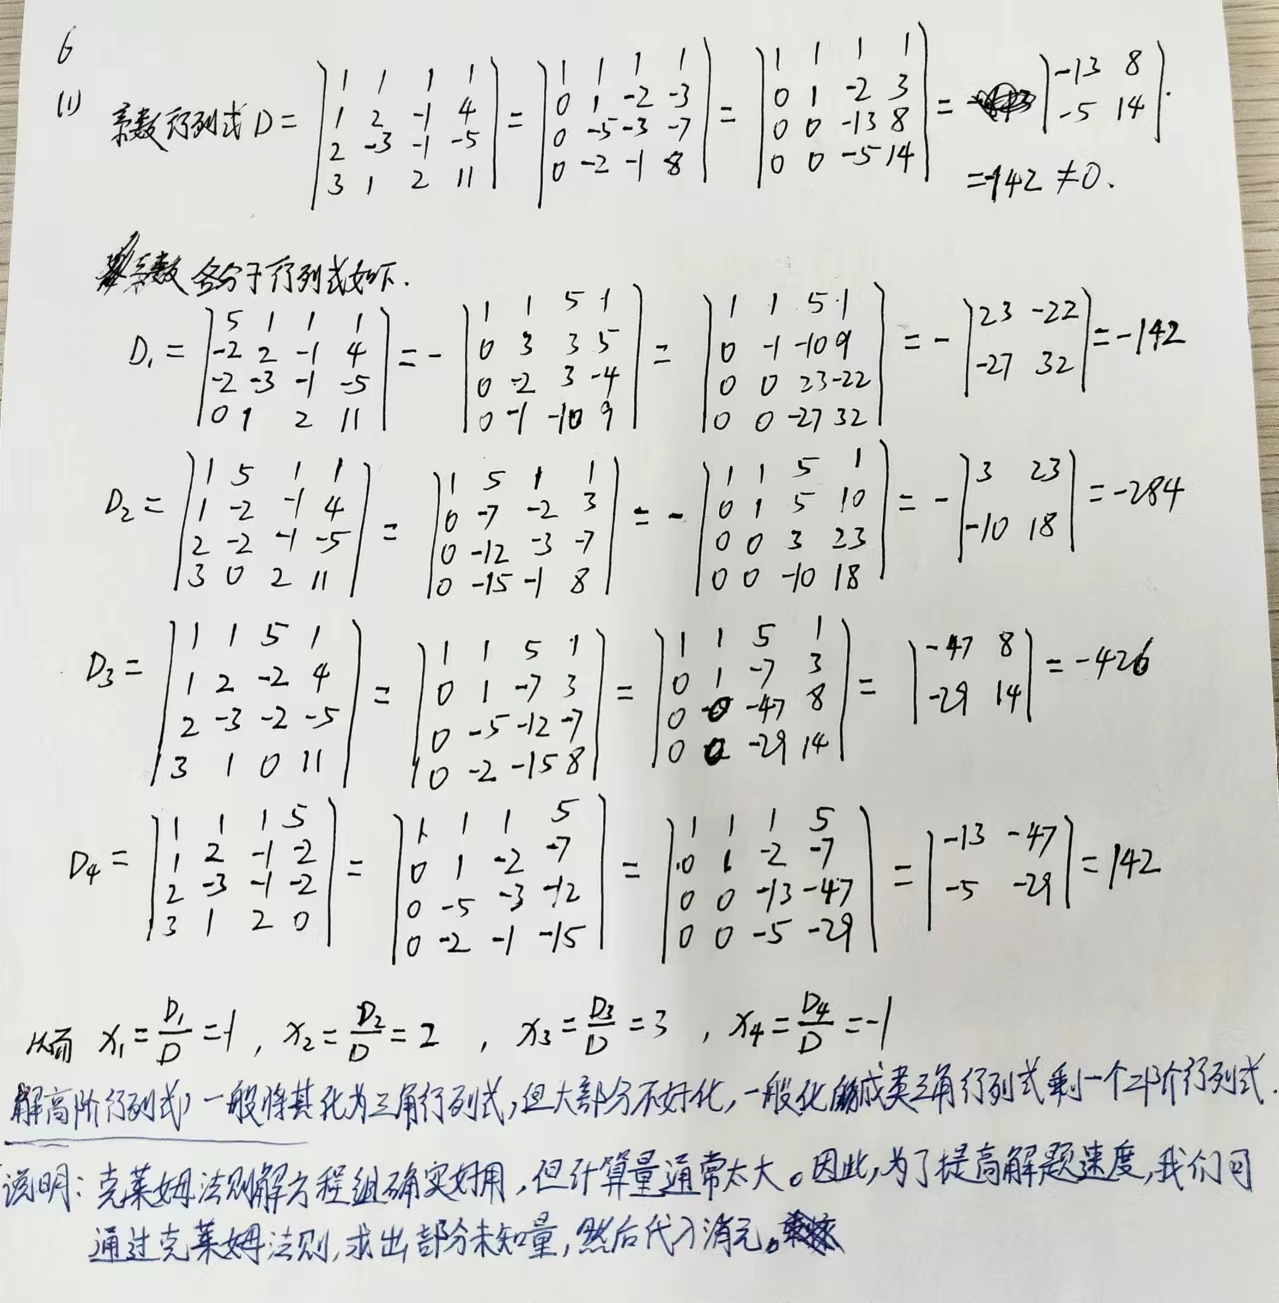 6
(1) 系数行列式 D = | 1 1 1 1 ; 1 2 -1 4 ; 2 -3 -1 -5 ; 3 1 2 11 | = | 1 1 1 1 ; 0 1 -2 -3 ; 0 -5 -3 -7 ; 0 -2 -1 8 | = | 1 1 1 1 ; 0 1 -2 3 ; 0 0 -13 8 ; 0 0 -5 14 | = | -13 8 ; -5 14 |.
=-142 ≠0.
系数 各分子行列式如下.
D₁ = | 5 1 1 1 ; -2 2 -1 4 ; -2 -3 -1 -5 ; 0 1 2 11 | = - | 1 1 5 1 ; 0 3 3 5 ; 0 -2 3 -4 ; 0 -1 -10 9 | = | 1 1 5 1 ; 0 -1 -10 9 ; 0 0 23 -22 ; 0 0 -27 32 | = - | 23 -22 ; -27 32 | = -142
D₂ = | 1 5 1 1 ; 1 -2 -1 4 ; 2 -2 -1 -5 ; 3 0 2 11 | = | 1 5 1 1 ; 0 -7 -2 3 ; 0 -12 -3 -7 ; 0 -15 -1 8 | = - | 1 1 5 1 ; 0 1 5 10 ; 0 0 3 23 ; 0 0 -10 18 | = - | 3 23 ; -10 18 | = -284
D₃ = | 1 1 5 1 ; 1 2 -2 4 ; 2 -3 -2 -5 ; 3 1 0 11 | = | 1 1 5 1 ; 0 1 -7 3 ; 0 -5 -12 -7 ; 0 -2 -15 8 | = | 1 1 5 1 ; 0 1 -7 3 ; 0 0 -47 8 ; 0 0 -29 14 | = | -47 8 ; -29 14 | = -426
D₄ = | 1 1 1 5 ; 1 2 -1 -2 ; 2 -3 -1 -2 ; 3 1 2 0 | = | 1 1 1 5 ; 0 1 -2 -7 ; 0 -5 -3 -12 ; 0 -2 -1 -15 | = | 1 1 1 5 ; 0 1 -2 -7 ; 0 0 -13 -47 ; 0 0 -5 -29 | = | -13 -47 ; -5 -29 | = 142
从而 x₁ = D₁/D = 1 , x₂ = D₂/D = 2 , x₃ = D₃/D = 3 , x₄ = D₄/D = -1
解高阶行列式,一般将其化为三角行列式,但大部分不好化,一般化成类三角行列式剩一个二阶行列式.
说明: 克莱姆法则解方程组确实好用,但计算量通常太大。因此,为了提高解题速度,我们可
通过克莱姆法则,求出部分未知量,然后代入消元。